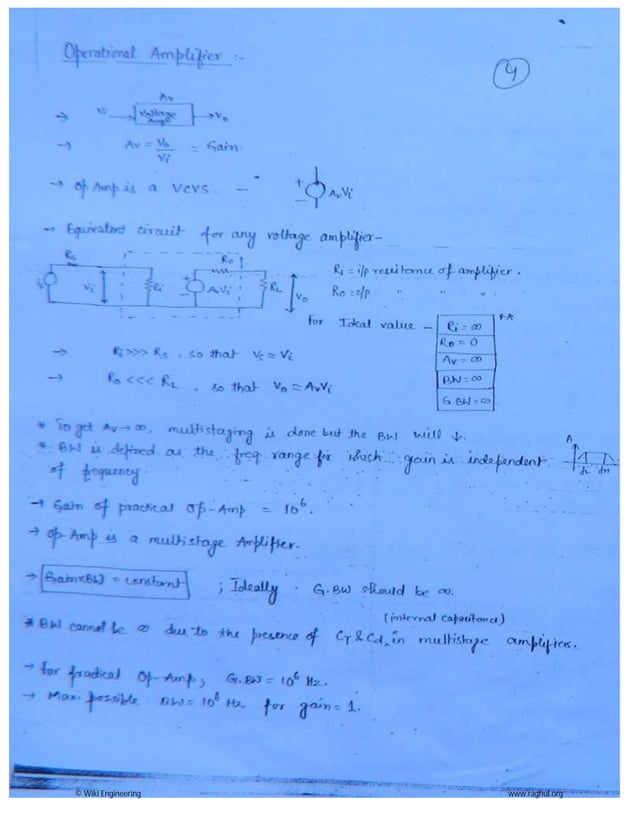 Operational Amplifier :-
4
Av
→ Vi Voltage Amp → Vo
→ Av = Vo/Vi = Gain.
→ Op Amp is a VCVS. - + - AvVi
→ Equivalent circuit for any voltage amplifier-
Rs Ro
Vi Ri + - AvVi RL Vo
Ri = i/p resistance of amplifier.
Ro = o/p " " "
for Ideal value - Ri = ∞ **
Ro = 0
Av = ∞
BW = ∞
G.BW = ∞
→ Ri >>> Rs, so that Vs ≈ Vi
→ Ro <<< RL, so that Vo ≈ AvVi
* To get Av → ∞, multistaging is done but the BW will ↓.
* BW is defined as the freq. range for which gain is independent
of frequency.
A
fL fH
→ Gain of practical Op-Amp = 10⁶.
→ Op-Amp is a multistage Amplifier.
→ Gain×BW = constant ; Ideally G.BW should be ∞.
(internal capacitance)
* BW cannot be ∞ due to the presence of CT & Cd in multistage amplifiers.
→ for practical Op-Amp, G.BW = 10⁶ Hz.
→ Max. possible BW = 10⁶ Hz for gain = 1.
© Wiki Engineering www.raghul.org